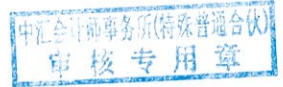 中汇会计师事务所(特殊普通合伙)
审核专用章